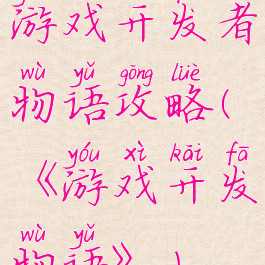 游戏开发者
wù yǔ gōng lüè
物语攻略(
yóu xì kāi fā
《游戏开发
wù yǔ
物语》